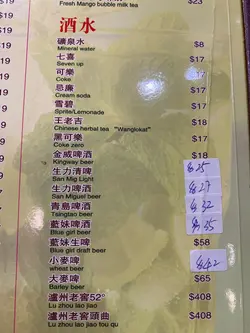 $19
Fresh Mango bubble milk tea
$23
酒水
$19
礦泉水
Mineral water
$8
七喜
Seven up
$17
$19
可樂
Coke
$17
忌廉
Cream soda
$17
雪碧
Sprite/Lemonade
$17
王老吉
Chinese herbal tea "Wanglokat"
$18
黑可樂
Coke zero
$17
金威啤酒
Kingway beer
$18
生力清啤
San Mig Light
$25
生力啤酒
San Miguel beer
$27
青島啤酒
Tsingtao beer
$32
藍妹啤酒
Blue girl beer
$35
藍妹生啤
Blue girl draft beer
$58
小麥啤
wheat beer
$42
大麥啤
Barley beer
$65
瀘州老窖52°
Lu zhou lao jiao
$408
瀘州老窖頭曲
Lu zhou lao jiao tou qu
$408